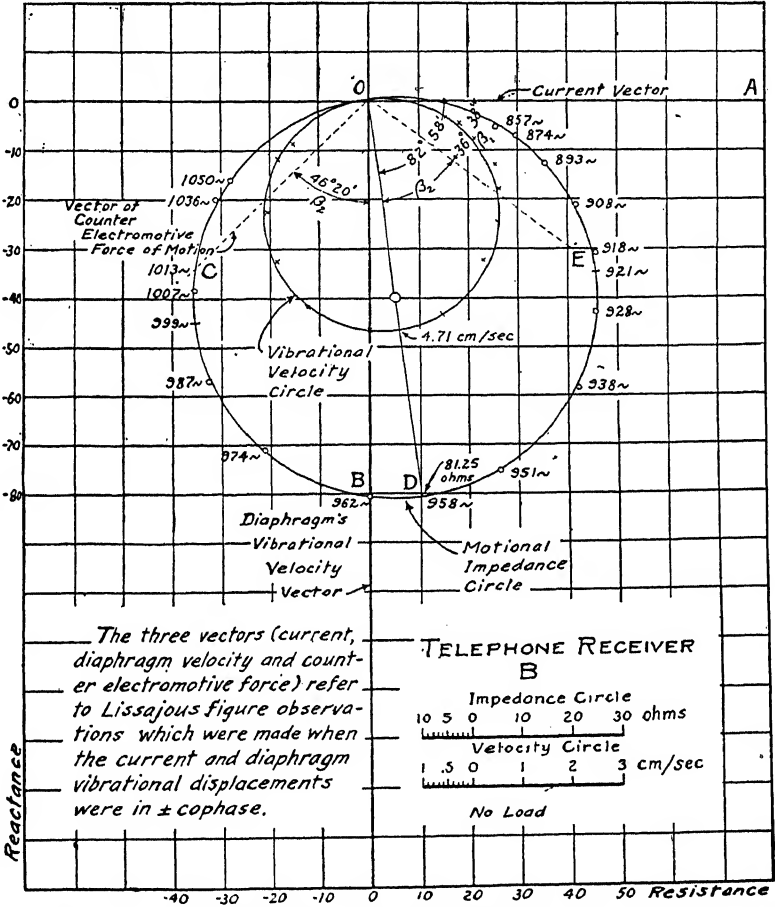 O
Current Vector
A
0
-10
-20
-30
-40
-50
-60
-70
-80
857~
874~
893~
908~
918~
E
921~
928~
938~
951~
82° 58'
36° 38'
β₁
β₂
46°20'
β₂
1050~
1036~
Vector of
Counter
Electromotive
Force of Motion
1013~
C
1007~
999~
987~
974~
4.71 cm/sec
Vibrational
Velocity
Circle
B
D
81.25
ohms
962~
958~
Diaphragm's
Vibrational
Velocity
Vector
Motional
Impedance
Circle
The three vectors (current,
diaphragm velocity and count-
er electromotive force) refer
to Lissajous figure observa-
tions which were made when
the current and diaphragm
vibrational displacements
were in ± cophase.
TELEPHONE RECEIVER
B
Impedance Circle
10 5 0 10 20 30 ohms
Velocity Circle
1 .5 0 1 2 3 cm/sec
No Load
Reactance
-40 -30 -20 -10 0 10 20 30 40 50 Resistance